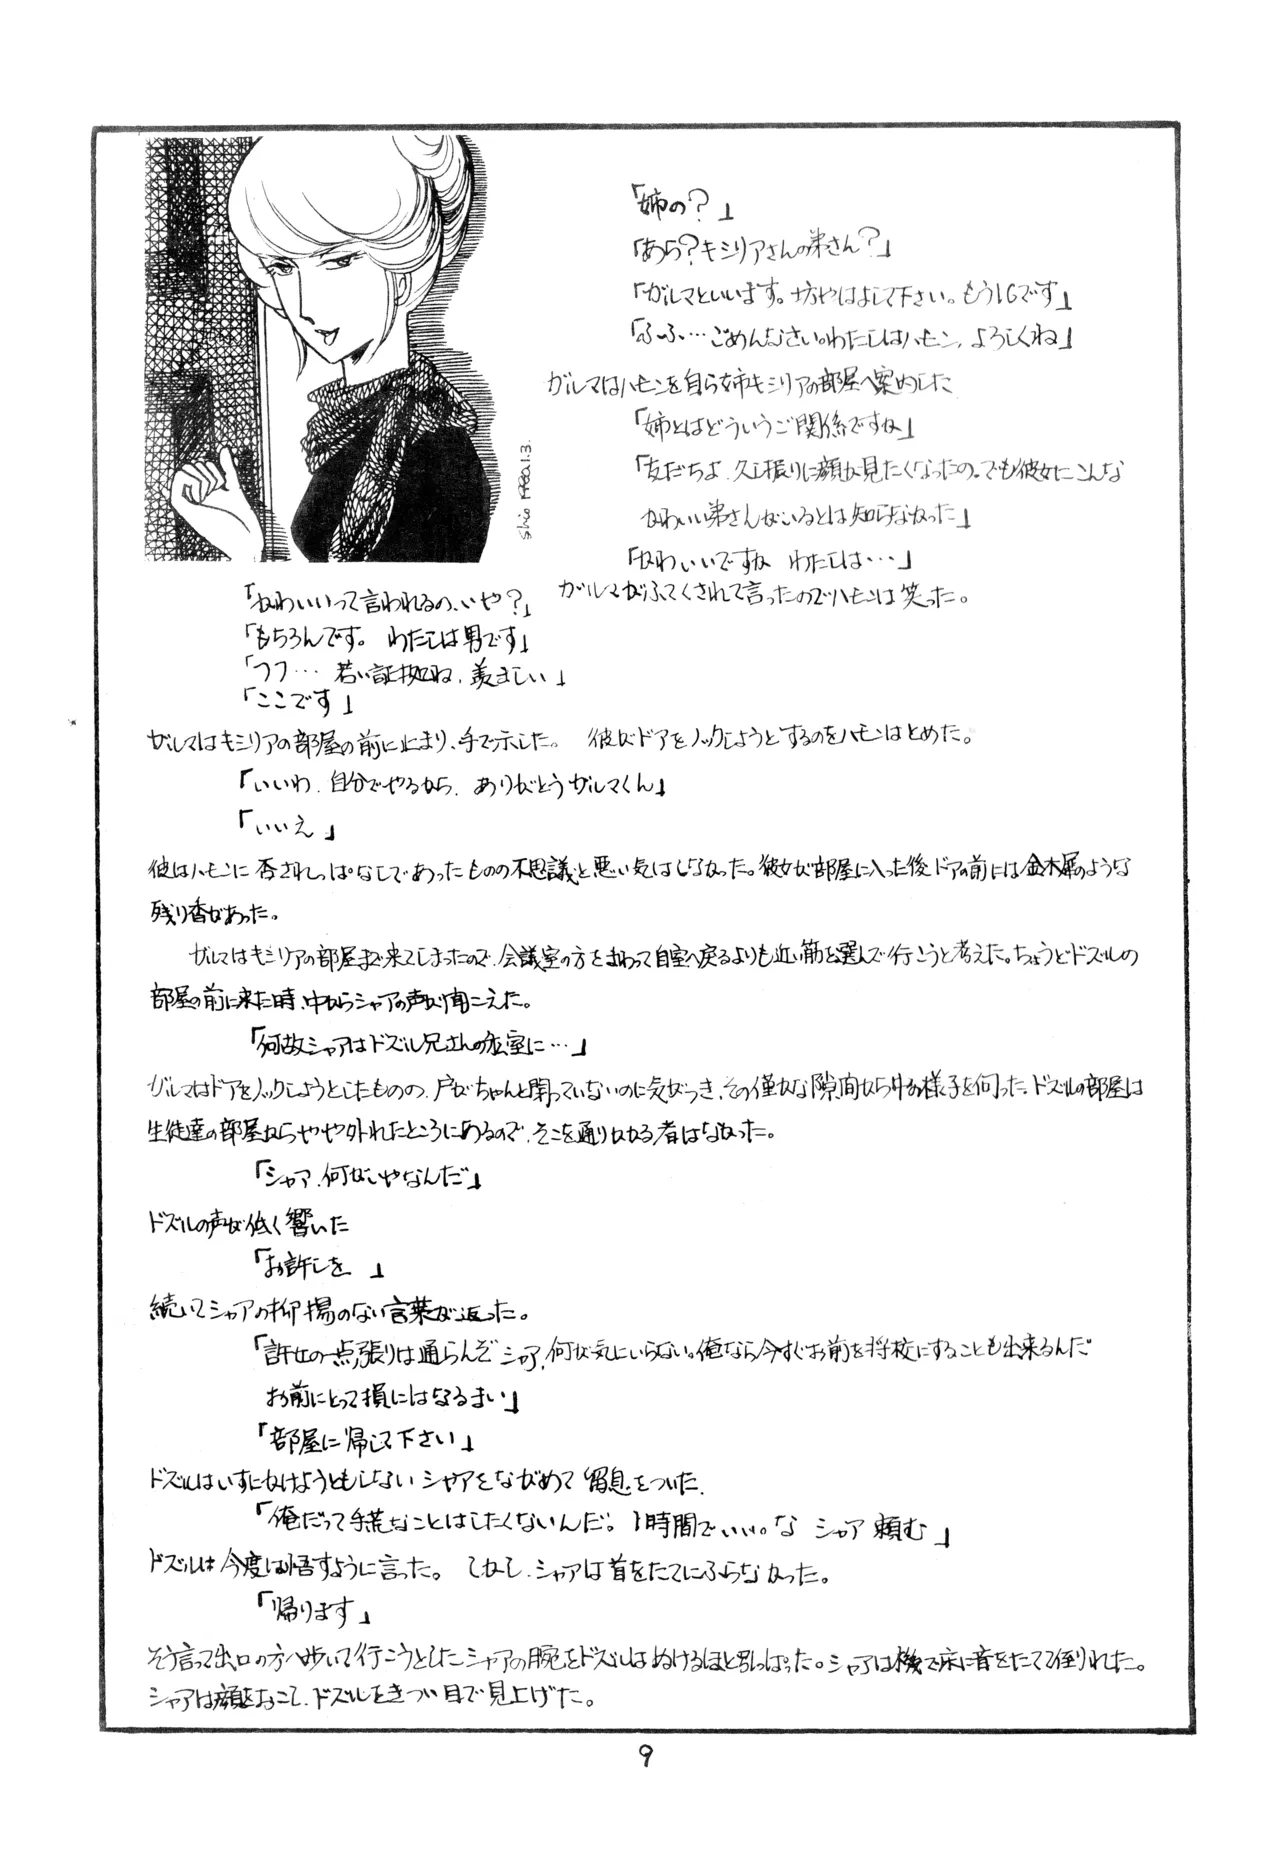 「姉の?」
「あら?キシリアさんの弟さん?」
「ガルマといいます。坊やはよして下さい。もう16です」
「ふふ…ごめんなさい。わたしはハモン、よろしくね」
ガルマはハモンを自ら姉キシリアの部屋へ案内した
「姉とはどういうご関係ですね」
「友だちよ、久し振りに顔が見たくなったの。でも彼女にこんな
かわいい弟さんがいるとは知らなかった」
「かわいいですね わたしは…」
ガルマがふてくされて言ったのでハモンは笑った。
shio 1980.1.3.
「かわいいって言われるの、いや?」
「もちろんです。 わたしは男です」
「フフ… 若い証拠ね、羨ましい」
「ここです」
ガルマはキシリアの部屋の前に止まり、手で示した。 彼がドアをノックしようとするのをハモンはとめた。
「いいわ、自分でやるから、ありがとうガルマくん」
「いいえ」
彼はハモンに呑されっぱなしであったものの不思議と悪い気はしなかった。彼女が部屋に入った後ドアの前には金木犀のような
残り香があった。
ガルマはキシリアの部屋まで来てしまったので、会議室の方をまわって自室へ戻るよりも近い筋を選んで行こうと考えた。ちょうどドズルの
部屋の前に来た時、中からシャアの声が聞こえた。
「何故シャアはドズル兄さんの私室に…」
ガルマはドアをノックしようとしたものの、戸がちゃんと閉っていないのに気がつき、その僅かな隙間から中の様子を伺った。ドズルの部屋は
生徒達の部屋からやや外れたところにあるので、そこを通りかかる者はなかった。
「シャア、何がいやなんだ」
ドズルの声が低く響いた
「お許しを 」
続いてシャアの抑揚のない言葉が返った。
「許せの一点張りは通らんぞシャア、何が気にいらない。俺なら今すぐお前を将校にすることも出来るんだ
お前にとって損にはなるまい」
「部屋に帰して下さい」
ドズルはいすにかけようともしないシャアをながめて溜息をついた。
「俺だって手荒なことはしたくないんだ。1時間でいい。な シャア 頼む」
ドズルは今度は悟すように言った。 しかし、シャアは首をたてにふらなかった。
「帰ります」
そう言って出口の方へ歩いて行こうとしたシャアの腕をドズルはぬけるほど引っぱった。シャアは機で床に音をたてて倒れた。
シャアは顔をおこして、ドズルをきつい目で見上げた。
9